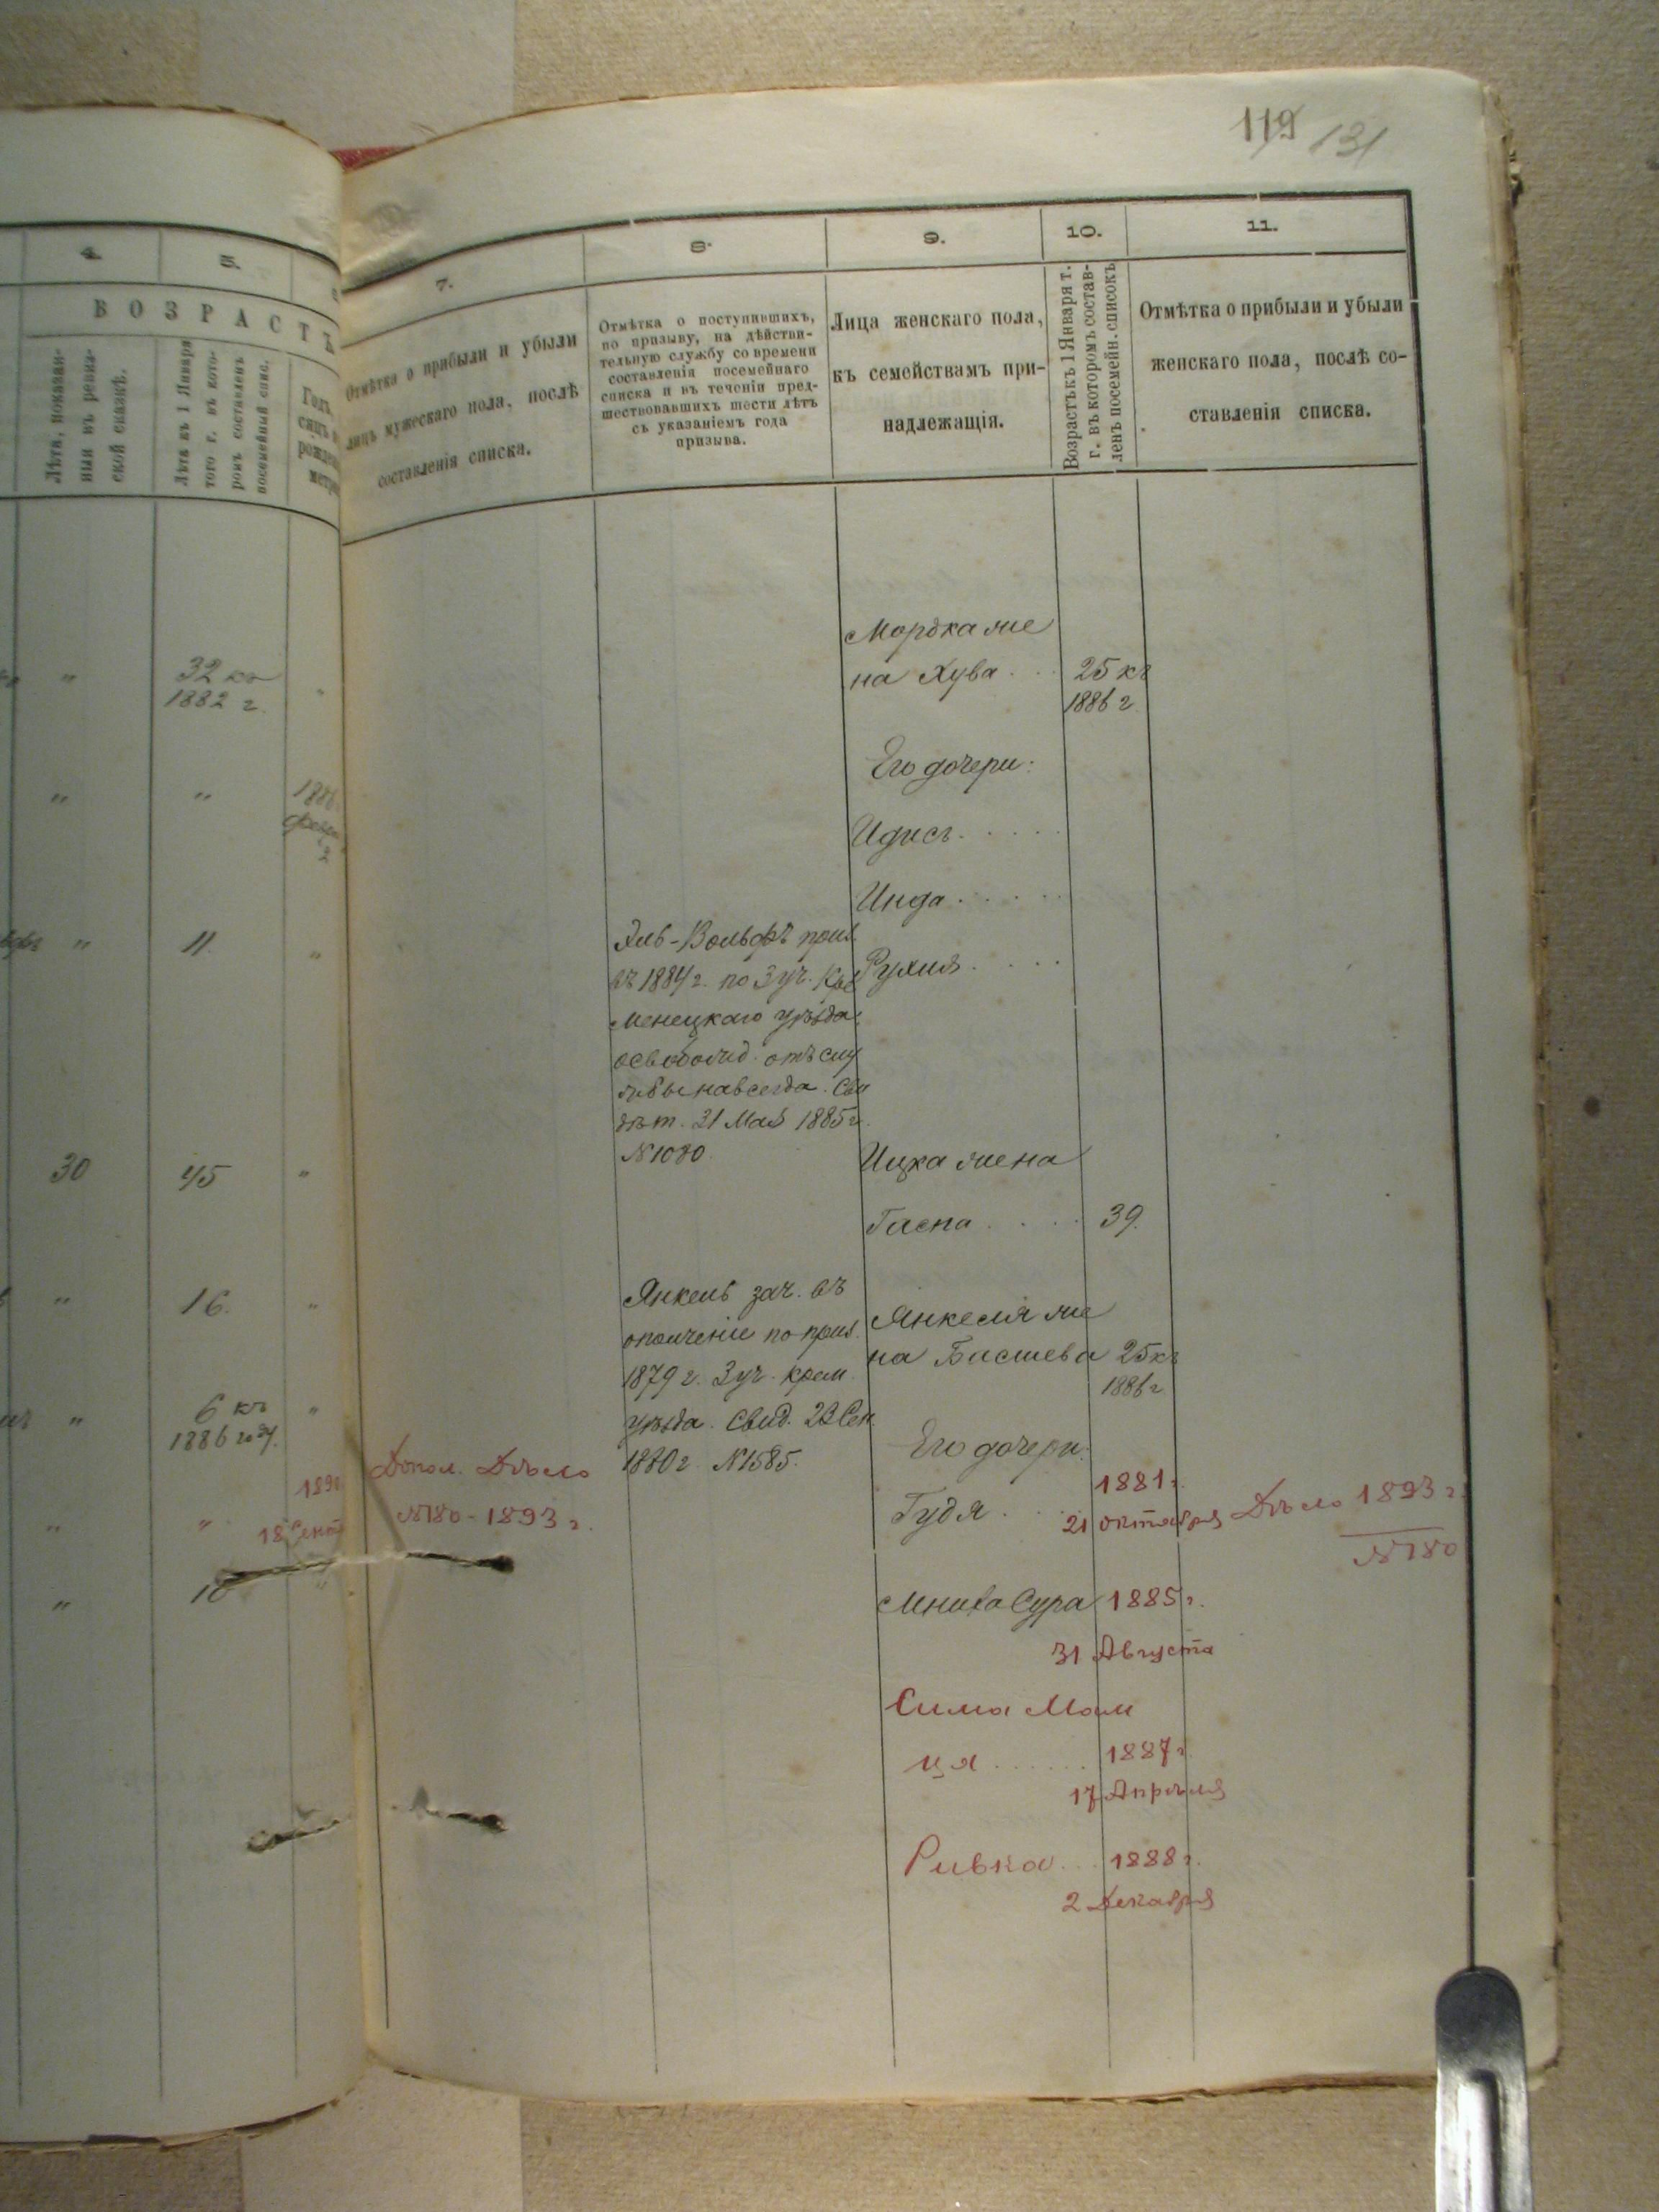 119 131
4. 5.
ВОЗРАСТЪ
Лѣта, показан-
ныя въ ревиз-
ской сказкѣ.
Лѣта къ 1 Января
того г. въ кото-
ромъ составленъ
посемейный спис.
Годъ,
сяцъ и
рожден
метри
32 къ
1882 г.
" "
" "
1886
" 11. "
30 45 "
" 16. "
" 6 къ "
1886 году.
1890
" " 18 Сент
" 10 "
7. 8. 9. 10. 11.
Отмѣтка о прибыли и убыли
лицъ мужескаго пола, послѣ
составленія списка.
Отмѣтка о поступившихъ,
по призыву, на дѣйстви-
тельную службу со времени
составленія посемейнаго
списка и въ теченіи пред-
шествовавшихъ шести лѣтъ
съ указаніемъ года
призыва.
Лица женскаго пола,
къ семействамъ при-
надлежащія.
Возрастъ къ 1 Января т.
г. въ которомъ состав-
ленъ посемейн. списокъ
Отмѣтка о прибыли и убыли
женскаго пола, послѣ со-
ставленія списка.
Допол. Дѣло
№180-1893 г.
-Вольфъ приз.
въ 1884 г. по 3 уч. Кре
менецкаго уѣзда,
освобожд. отъ слу
жбы навсегда. Сви
дѣт. 31 Мая 1885 г.
№1080.
Янкель зач. въ
ополченіе по приз.
1879 г. 3 уч. Крем.
уѣзда. Свид. 23 Сен.
1880 г. №1585.
Мордка же
на Хува . . . 25 къ
1886 г.
Его дочери:
Идись . . . . .
Инда . . . . .
Рухля . . . .
Ицка жена
Гаспа . . . . 39.
Янкеля же
на Басшева 25 къ
1886 г
Его дочери:
1881 г.
Гудя . . . 21 октября Дѣло 1893 г.
№180
Сура 1885 г.
31 Августа
Сима Мал
ця . . . . . . 1887 г.
17 Апрѣля
Ривка . . . 1888 г.
2 Декабря